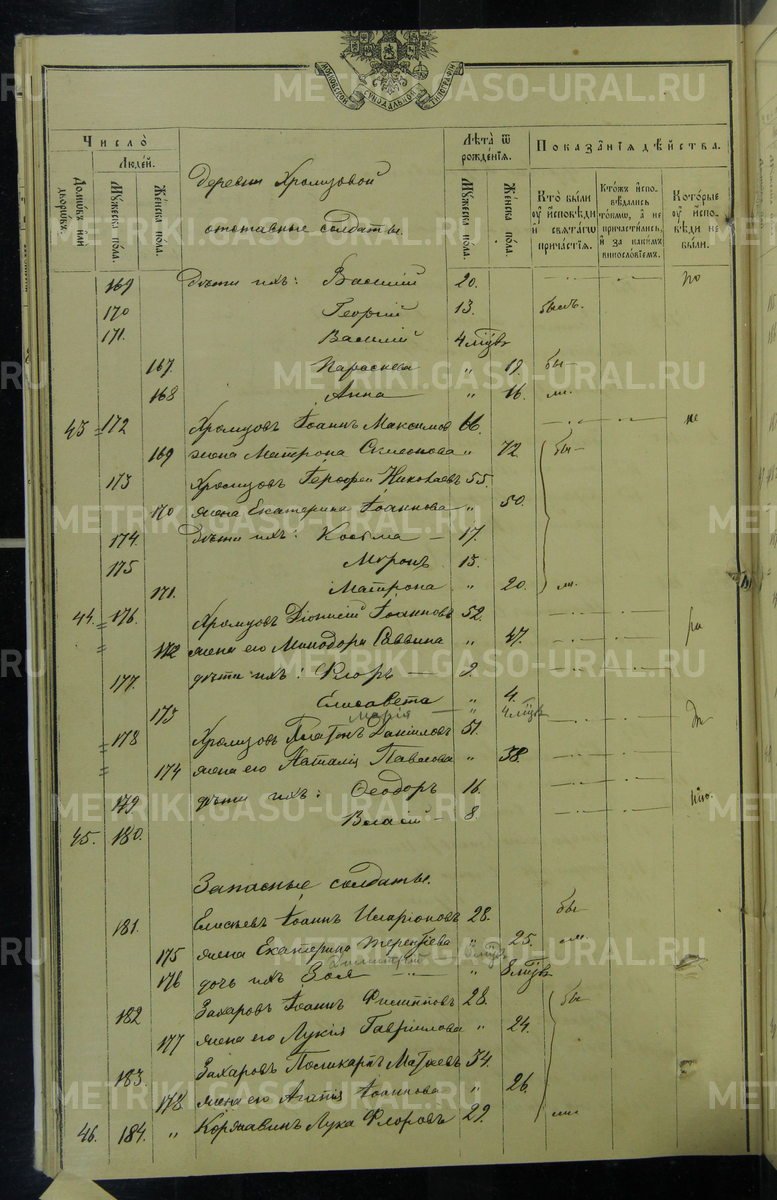 МОСКОВСКОЙ СѴНОДАЛЬНОЙ ТИПОГРАФІИ
Число̀
Людей.
Домовъ или дворовъ.
Мужеска пола.
Женска пола.
деревни Хромцовой
отставные солдаты.
Лѣта ѿ рожденїя.
Мужеска пола.
Женска пола.
Показанїя дѣйства.
Кто были оу исповѣди и святаго причастїя.
Ктожъ исповѣдались токмо, а не причастились, и за какимъ винословіемъ.
Которые оу исповѣди не были.
169 дѣти ихъ: Василий 20. по
170 Георгій 13. былъ
171. Василий 4 мцвъ
167. Параскева „ 19. бы-
168 Анна „ 16. ли.
43 172 Хромцовъ Іоаннъ Максимов 66. не
169 жена Матрона Симеонова „ 72 бы-
173 Хромцовъ Герофей Николаевъ 55.
170 жена Екатерина Іоаннова „ 50.
174. дѣти ихъ: Косьма – 17.
175 Миронъ 13.
171. Матрона „ 20. ли.
44. 176. Хромцовъ Діонисій Іоанновъ 52.
172 жена его Минодора Саввина „ 47. ра
177. дѣти ихъ: Егоръ — 9.
173 Елисавета „ 4.
Марія — „ 4 мцвъ
178 Хромцовъ Платонъ Даніиловъ 51. дѣ
174 жена его Наталія Павлова „ 38.
179 дѣти ихъ: Ѳеодоръ 16.
45. 180. Власій – 8.
Запасные солдаты.
181. Елисѣевъ Іоаннъ Иларіоновъ 28. бы
175 жена Екатерина Терентьева „ 25. ли.
176 дочь ихъ Зоя — „ 8 мцвъ
182 Захаровъ Іоаннъ Филипповъ 28. бы
177 жена его Лукія Гавріилова „ 24.
183. Захаровъ Поликарпъ Матѳеевъ 34.
178 жена его Агапія Іоаннова „ 26.
46. 184. „ Корявинъ Лука Флоровъ 29. ли
METRIKI.GASO-URAL.RU